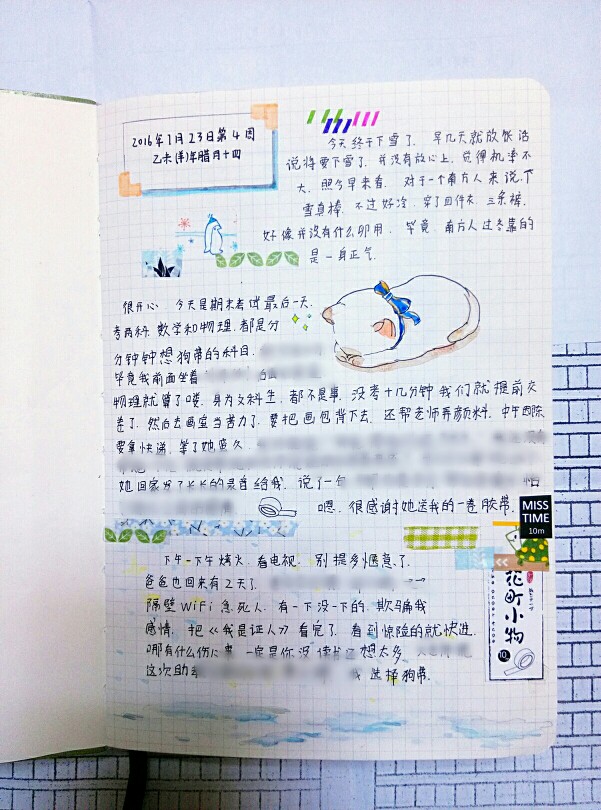 2016年1月23日第4周
乙未(羊)年腊月十四
今天终于下雪了. 早几天就放假话
说将要下雪了. 并没有放心上. 觉得机率不
大. 照今早来看. 对于一个南方人来说.下
雪真棒. 不过好冷. 穿了四件衣. 三条裤.
好像并没有什么卵用. 毕竟 南方人过冬靠的
是一身正气.
很开心. 今天是期末考试最后一天.
考两科. 数学和物理. 都是分
分钟钟想狗带的科目.
毕竟我前面坐着
物理就算了喽. 身为文科生. 都不是事. 没考十几分钟我们就提前交
卷了. 然后去画室当苦力了. 要把画包背下去. 还帮老师弄颜料. 中午
要拿快递. 等了她
她回家发了长长的录音给我. 说了一句
嗯. 很感谢她送我的一卷胶带.
MISS
TIME
10m
下午一下午烤火. 看电视. 别提多惬意了.
爸爸也回来有2天了.
隔壁WiFi急死人. 有一下没一下的. 欺骗我
感情. 把《我是证人》看完了. 看到惊险的就快进.
哪有什么 一定是你没读书 想太多
这次 我选择狗带.
花町小物
10